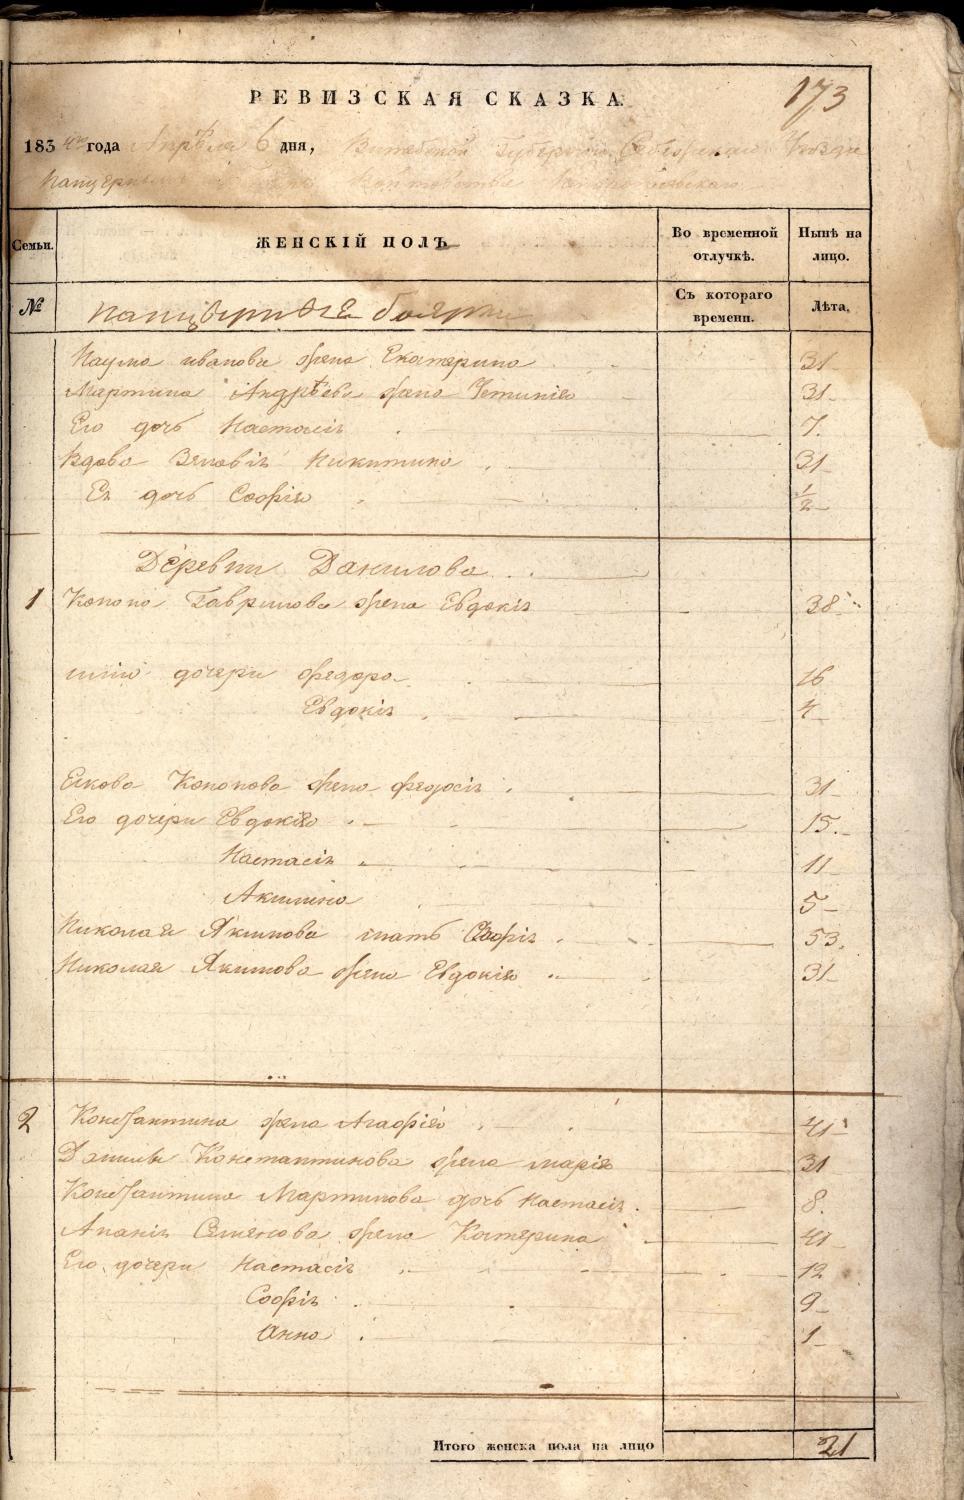 РЕВИЗСКАЯ СКАЗКА
173
1834го года Апрѣля 6 дня, Витебской губернии Себежскаго уезда
Панцерныхъ войтовства
Семьи. ЖЕНСКІЙ ПОЛЪ Во временной отлучкѣ. Нынѣ на лицо.
№ панцерные бояры Съ котораго времени. Лѣта.
Наума иванова жена Екатерина 31
Мартина Андрѣева жена Устинія 31
Его дочь Настасія 7.
Вдова Зиновія Никитина 31
Ея дочь Софія 1/2
Деревни Данилова
1 Конона Гаврилова жена Евдокія 38
дочери Федора 16
Евдокія 4
Якова Кононова жена федосія 31
Его дочери Евдокія 15.
Настасія 11
Акилина 5
Николая Якимова мать Софія 53.
Николая Якимова жена Евдокія 31
2 Константина жена Агафія 41
Данилы Константинова жена марія 31
Константина Мартинова дочь Настасія 8.
Ананія Семенова жена Катерина 41
Его дочери Настасія 12
Софія 9
Анна 1
Итого женска пола на лицо 21